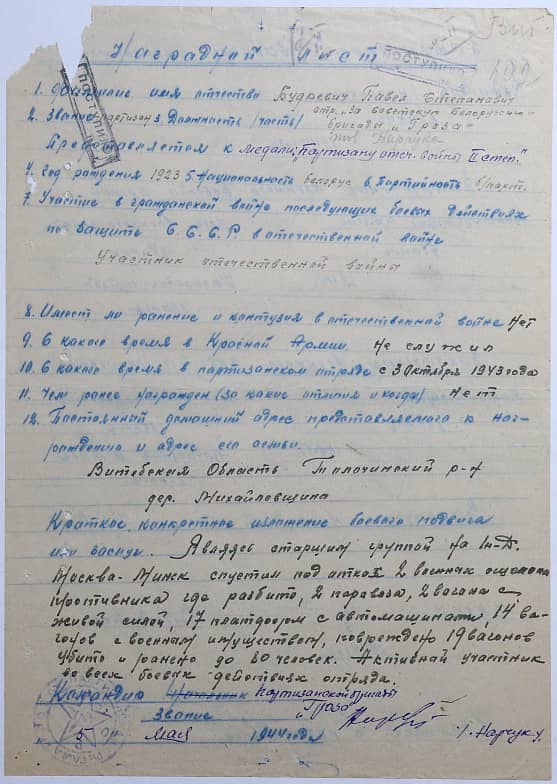 Наградной лист
ПОСТУПИЛО
ПОСТУПИЛО
1. Фамилие имя отчество Будревич Павел Степанович
2. Звание партизан 3 Должность (часть) отр. „За советскую Белоруссию"
бригады „Гроза"
Представляется к медали „Партизану отеч. войны II степ."
4. год рождения 1923 5 Национальность белорус 6 Партийность б/парт.
7. Участие в гражданской войне последующих боевых действиях
по защите С.С.С.Р. в отечественной войне
Участник отечественной войны
8. Имеет ли ранение и контузия в отечественной войне Нет
9. С какого время в Красной Армии. Не служил
10. С какого время в партизанском отряде с 3 Октября 1943 года
11. Чем ранее награжден (за какие отличия и когда) Нет
12. Постоянный домашний адрес представляемого к наг-
раждению и адрес его семьи.
Витебская Область Толочинский р-н
дер. Михайловщина
Краткое, конкретное изложение боевого подвига
или заслуг. Являясь старшим группой на Ж-Д.
Москва-Минск спустил под откос 2 военных эшелона
противника где разбито, 2 паровоза, 2 вагона с
живой силой, 17 платформ с автомашинами, 14 ва-
гонов с военным имуществом, повреждено 19 вагонов
убито и ранено до 80 человек. Активный участник
во всех боевых действиях отряда.
Командир партизанской бригады
Звание „Гроза"
/. Нарчук/
5 мая 1944 года